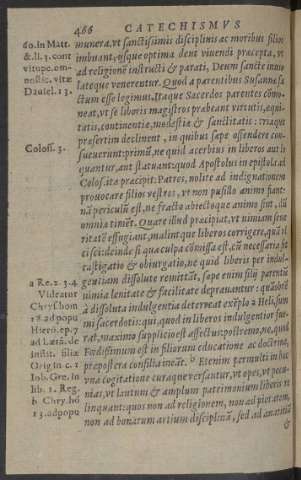 466 CATECHISMVS
munera, vt sanctissimis disciplinis ac moribus filios
imbuant, vsque optima dent viuendi præcepta, vt
ad religionẽ instructi & parati, Deum sanctè inuio
lateque venerentur. Quod à parentibus Susannæ fa
ctum esse legimus. Itaque Sacerdos parentes cõmo
neat, vt se liberis magistros præbeant virtutis, æqui-
tatis, continentiæ, modestiæ & sanctitatis: triaque
præsertim declinent, in quibus sæpe offendere con-
sueuerunt: primũ, ne quid acerbius in liberos aut lo
quantur, aut statuant: quod Apostolus in epistola ad
Colos. ita præcipit: Patres, nolite ad indignationem
prouocare filios vestros, vt non pusillo animo fiant.
nã periculũ est, ne fracto abiectoque animo sint, dũ
omnia timẽt. Quare illud præcipiat, vt nimiam seue
ritatẽ effugiant, malintque liberos corrigere, quã vl
cisci: deinde si qua culpa cõmissa est, cũ necessaria sit
castigatio & obiurgatio, ne quid liberis per indul-
gentiam dissolute remittãt, sæpe enim filij parentũ
nimia lenitate & facilitate deprauantur: quãobrẽ
à dissoluta indulgentia deterreat exẽplo à Heli, sum
mi sacerdotis: qui, quod in liberos indulgentior fue-
rat, maximo supplicio est affectus: postremo, ne, quod
fœdissimum est in filiorum educatione ac doctrina,
præpostera consilia ineãt. b Etenim permulti in hac
vna cogitatione curaque versantur, vt opes, vt pecu-
nias, vt lautum & amplum patrimonium liberis re
linquant: quos non ad religionem, non ad pietatem,
non ad bonarum artium disciplinã, sed ad auaritiã
&
60. in Matt.
& li. 3. cont
vitupe.
nastic. vitæ
Daniel. 13.
Coloss. 3.
a Re. 2. 3. 4
Videatur
Chrysost.
18. ad popu
Hiero. ep. 7
ad Lætã. de
Instit. filiæ
Orig in c. 1
Iob. Gre. in
lib. 1. Reg.
b Chry. ho
13. ad popu